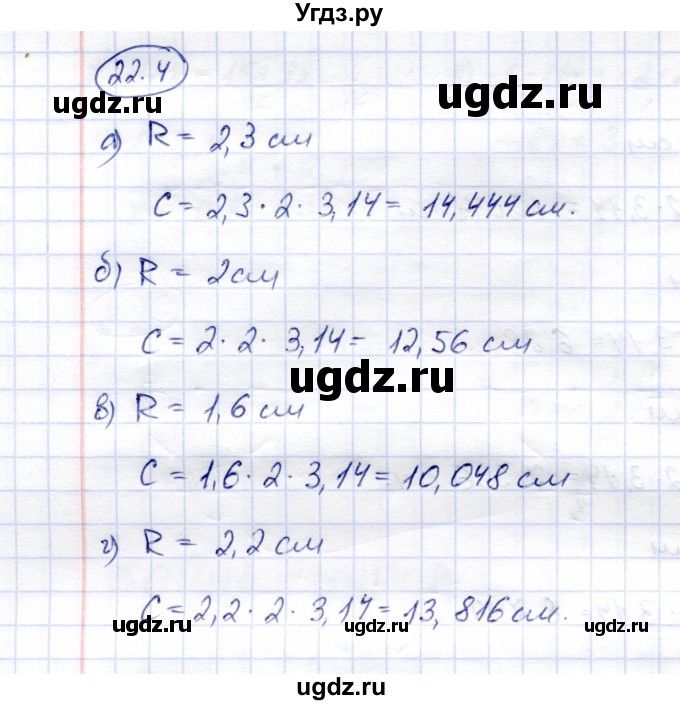 Угдз.ру
22.4
ugdz.ru
ugdz.ru
а) R = 2,3 см
C = 2,3 · 2 · 3,14 = 14,444 см.
б) R = 2 см
C = 2 · 2 · 3,14 = 12,56 см
ugdz.ru
в) R = 1,6 см
C = 1,6 · 2 · 3,14 = 10,048 см
г) R = 2,2 см
C = 2,2 · 2 · 3,14 = 13,816 см.
ugdz.ru
ugdz.ru
ugdz.ru
ugdz.ru